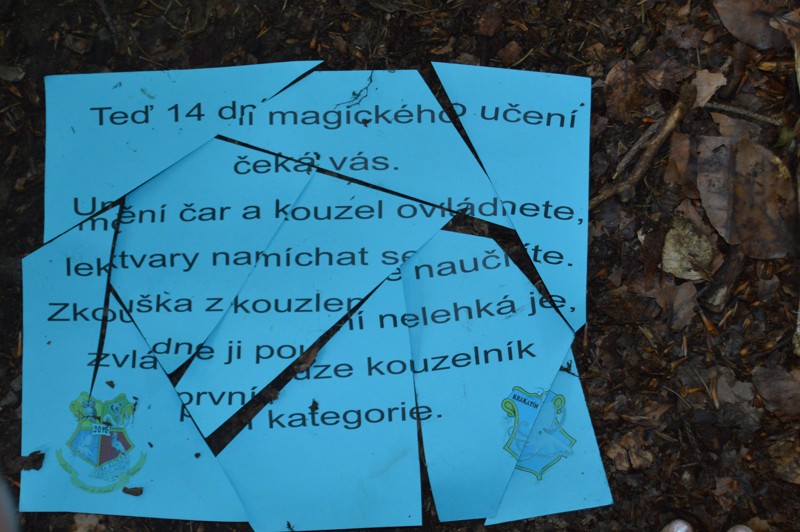 Teď 14 dní magického učení
čeká vás.
Umění čar a kouzel ovládnete,
lektvary namíchat se naučíte.
Zkouška z kouzlení nelehká je,
zvládne ji pouze kouzelník
první kategorie.